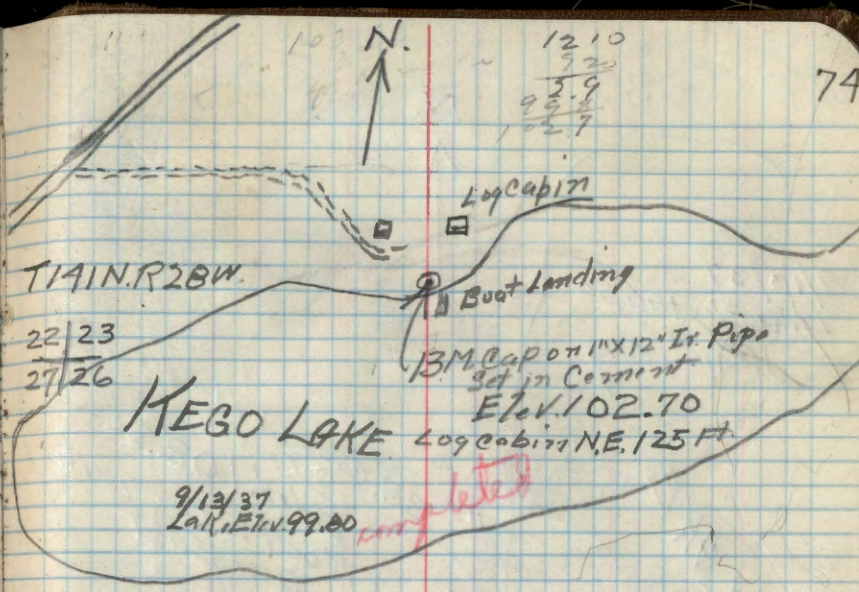 N.
12 10
9 20
2.9
99 8
102.7
74
Log Cabin
T141N.R28W.
Boat Landing
22 23
27 26
BM Cap on 1"X12" Ir. Pipe
Set in Cement
Elev. 102.70
KEGO LAKE
Log cabin N.E. 125 Ft.
9/13/37
Lak. Elev. 99.80
completed